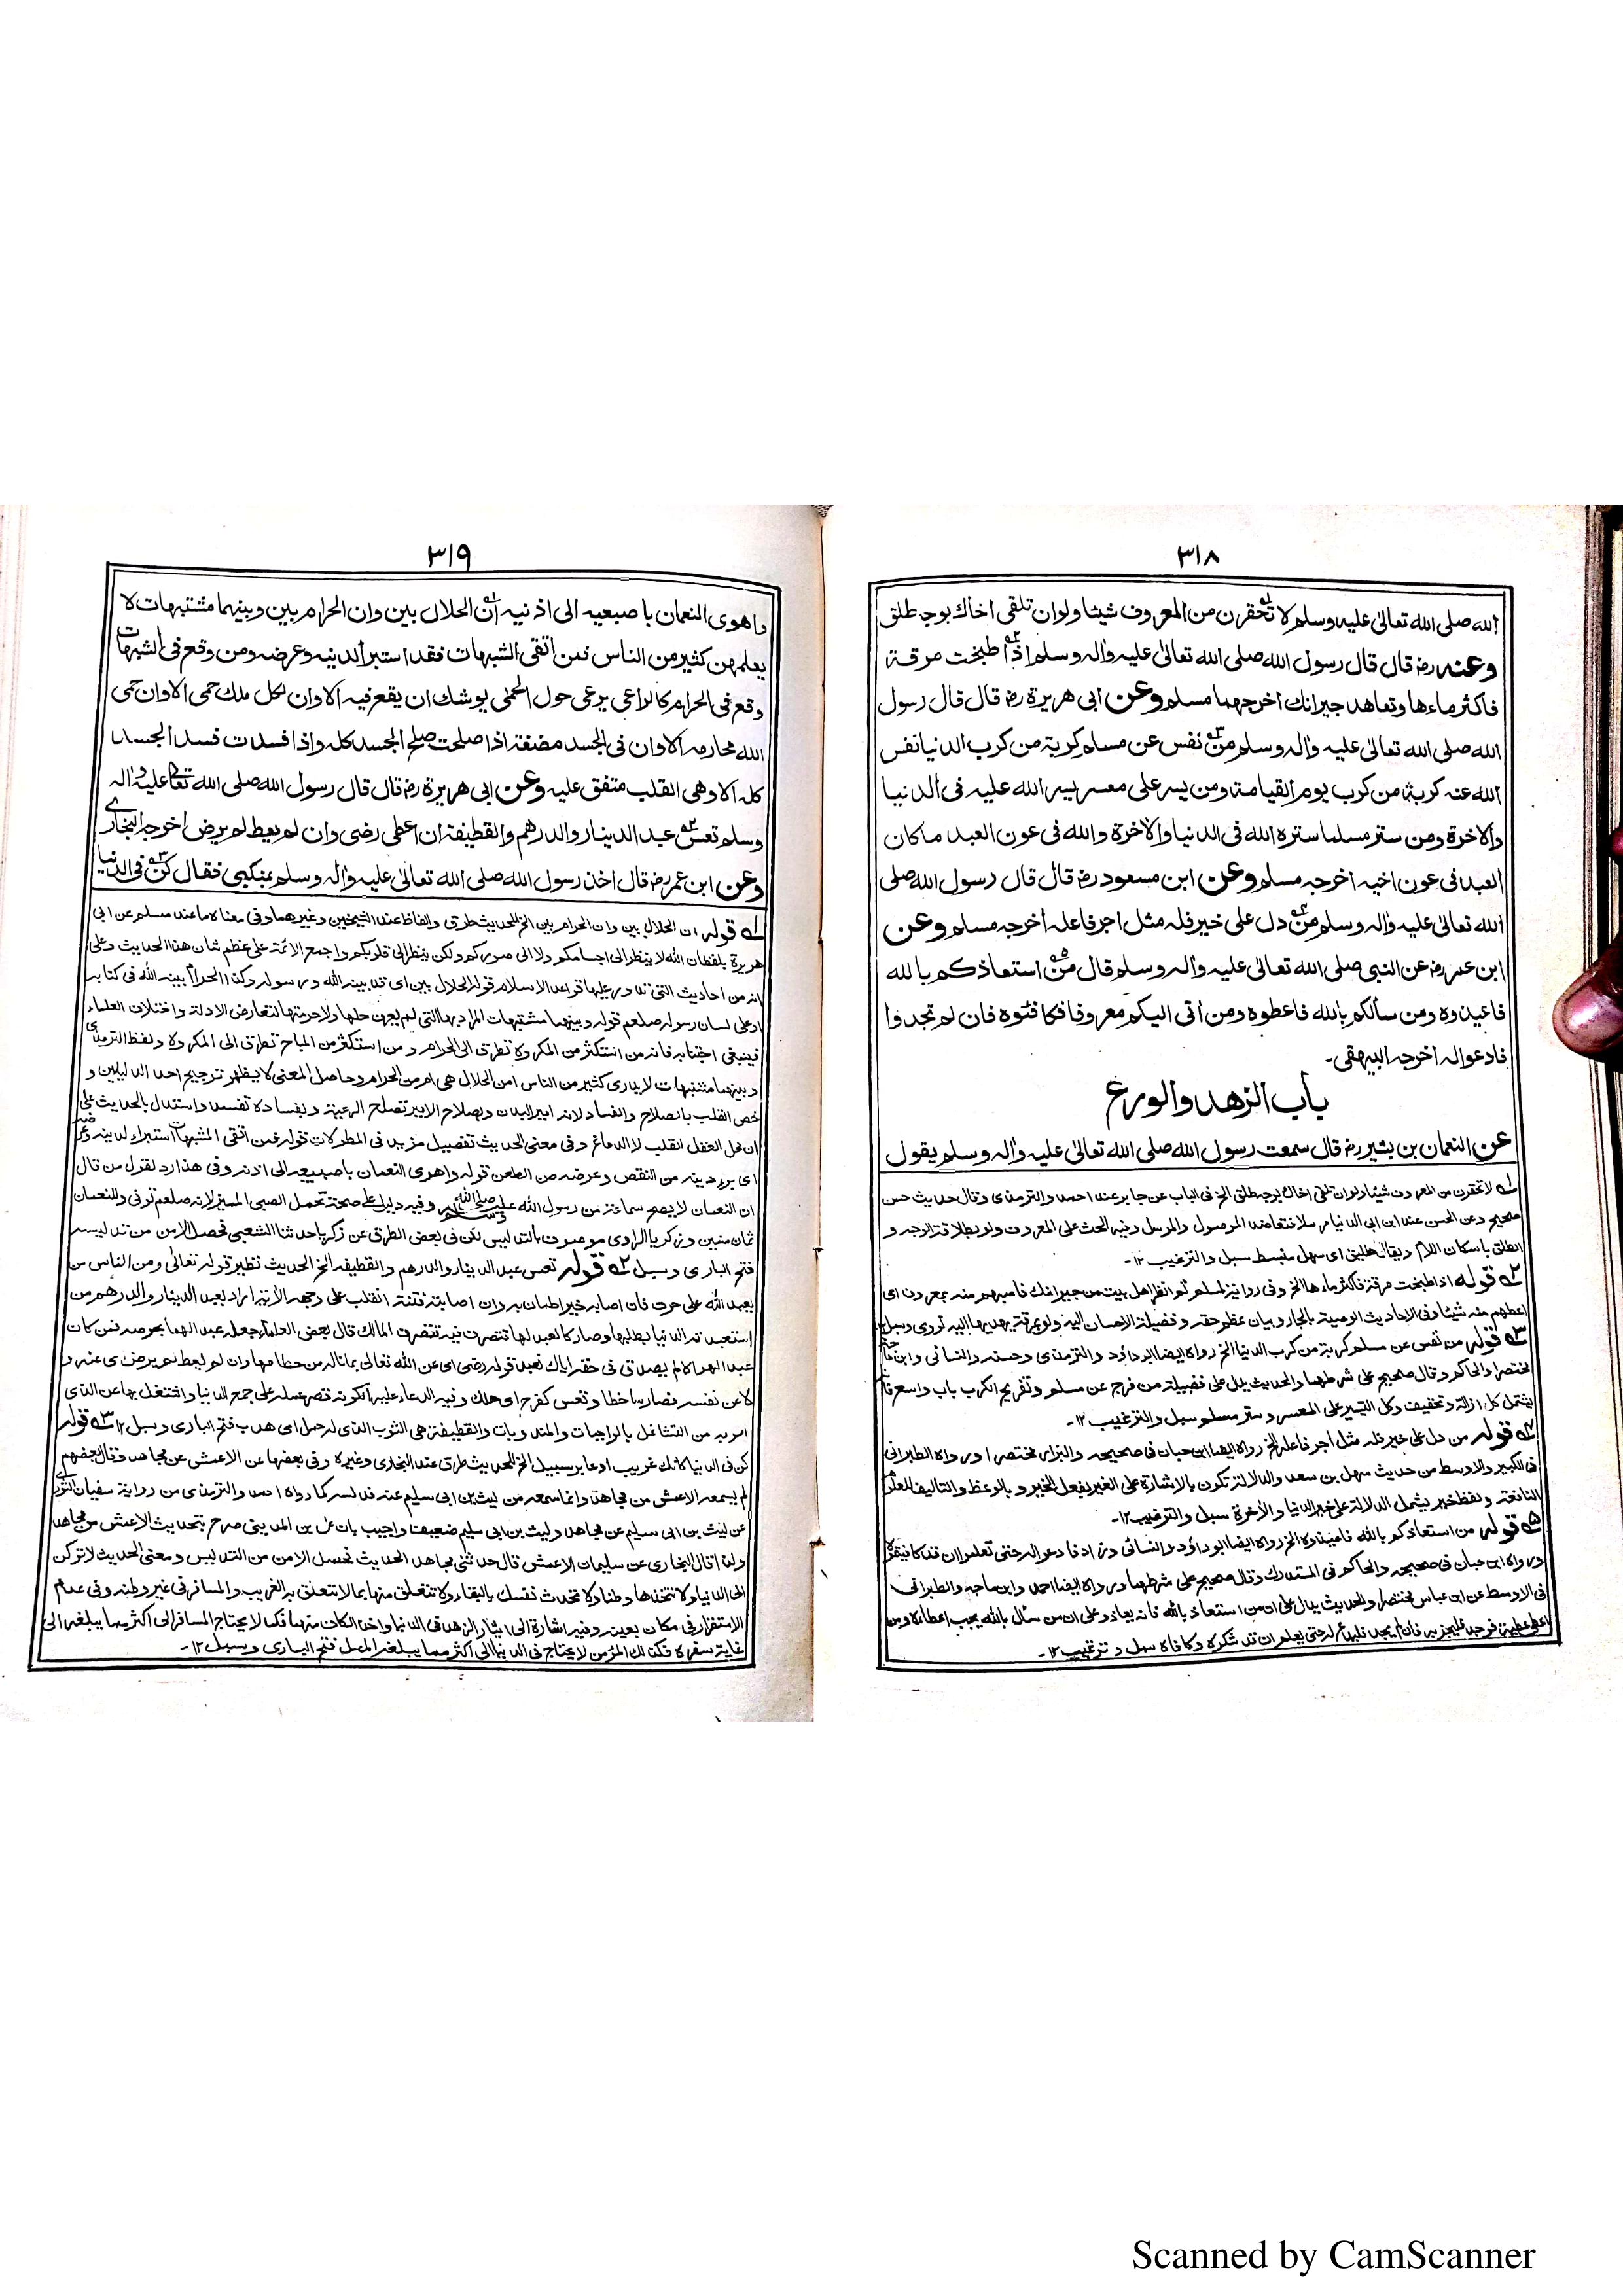 ٣١٨
الله صلى الله تعالى عليه وسلم لا تحقرن من المعروف شيئا ولو ان تلقى اخاك بوجه طلق
وعنه رض قال قال رسول الله صلى الله تعالى عليه واله وسلم اذا طبخت مرقة
فاكثر ماءها وتعاهد جيرانك اخرجهما مسلم وعن ابى هريرة رض قال قال رسول
الله صلى الله تعالى عليه واله وسلم من نفس عن مسلم كربة من كرب الدنيا نفس
الله عنه كربة من كرب يوم القيامة ومن يسر على معسر يسر الله عليه فى الدنيا
والاخرة ومن ستر مسلما ستره الله فى الدنيا والاخرة والله فى عون العبد ما كان
العبد فى عون اخيه اخرجه مسلم وعن ابن مسعود رض قال قال رسول الله صلى
الله تعالى عليه واله وسلم من دل على خير فله مثل اجر فاعله اخرجه مسلم وعن
ابن عمر رض عن النبى صلى الله تعالى عليه واله وسلم قال من استعاذكم بالله
فاعيذوه ومن سألكم بالله فاعطوه ومن اتى اليكم معروفا فكافئوه فان لم تجدوا
فادعوا له اخرجه البيهقى۔
باب الزهد والورع
عن النعمان بن بشير رض قال سمعت رسول الله صلى الله تعالى عليه واله وسلم يقول
١ لا تحقرن من المعروف شيئا ولو ان تلقى اخاك بوجه طلق الخ وفى الباب عن جابر عند احمد والترمذى وقال حديث حسن
صحيح وعن الحسن عند ابن ابى الدنيا مرسلا فتعاضد الموصول والمرسل وفيه الحث على المعروف ولو بطلاقة الوجه و
الطلق باسكان اللام ويقال طليق اى سهل منبسط سبل والترغيب ١٢۔
٢ قوله اذا طبخت مرقة فاكثر ماءها الخ وفى رواية لمسلم ثم انظر اهل بيت من جيرانك فاصبهم منه بمعروف اى
اعطهم منه شيئا وفى الاحاديث الوصية بالجار وبيان عظم حقه وفضيلة الاحسان اليه ولو بمرقة يهديها اليه نووى وسبل
٣ قوله من نفس عن مسلم كربة من كرب الدنيا الخ رواه ايضا ابو داؤد والترمذى وحسنه والنسائى وابن ماجه
مختصرا والحاكم وقال صحيح على شرطهما والحديث يدل على فضيلة من فرج عن مسلم وتفريج الكرب باب واسع
يشمل كل ازالة وتخفيف وكل التيسير على المعسر وستر مسلم سبل والترغيب ١٢۔
٤ قوله من دل على خير فله مثل اجر فاعله الخ رواه ايضا ابن حبان فى صحيحه والبزار مختصرا ورواه الطبرانى
فى الكبير والاوسط من حديث سهل بن سعد والدلالة تكون بالاشارة على الغير بفعل الخير وبالوعظ والتاليف للعلوم
النافعة ولفظ خير يشمل الدلالة على خير الدنيا والاخرة سبل والترغيب ١٢۔
٥ قوله من استعاذكم بالله فاعيذوه الخ رواه ايضا ابو داؤد والنسائى وزاد فادعوا له حتى تعلموا ان قد كافيتموه
ورواه ابن حبان فى صحيحه والحاكم فى المستدرك وقال صحيح على شرطهما ورواه ايضا احمد وابن ماجه والطبرانى
فى الاوسط عن ابن عباس مختصرا والحديث يدل على ان من استعاذ بالله فانه يعاذ وعلى ان من سأل بالله يجب اعطاءه ومن
اعطى عطية فوجد فليجز به فان لم يجد فليدع له حتى يعلم ان قد شكره وكافاه سبل وترغيب ١٢۔
٣١٩
واهوى النعمان باصبعيه الى اذنيه ان الحلال بين وان الحرام بين وبينهما مشتبهات لا
يعلمهن كثير من الناس فمن اتقى الشبهات فقد استبرأ لدينه وعرضه ومن وقع فى الشبهات
وقع فى الحرام كالراعى يرعى حول الحمى يوشك ان يقع فيه الا وان لكل ملك حمى الا وان حمى
الله محارمه الا وان فى الجسد مضغة اذا صلحت صلح الجسد كله واذا فسدت فسد الجسد
كله الا وهى القلب متفق عليه وعن ابى هريرة رض قال قال رسول الله صلى الله تعالى عليه واله
وسلم تعس عبد الدينار والدرهم والقطيفة ان اعطى رضى وان لم يعط لم يرض اخرجه البخارى
وعن ابن عمر رض قال اخذ رسول الله صلى الله تعالى عليه واله وسلم بمنكبى فقال كن فى الدنيا
١ قوله ان الحلال بين وان الحرام بين الخ للحديث طرق والفاظ عند الشيخين وغيرهما وفى معناه ما عند مسلم عن ابى
هريرة بلفظ ان الله لا ينظر الى اجسامكم ولا الى صوركم ولكن ينظر الى قلوبكم واجمع الائمة على عظم شان هذا الحديث وعلى
انه من احاديث التى تدور عليها قواعد الاسلام قوله الحلال بين اى قد بينه الله ورسوله وكذا الحرام بينه الله فى كتابه
او على لسان رسوله صلعم قوله وبينهما مشتبهات المراد بها التى لم يعرف حلها ولا حرمتها لتعارض الادلة واختلاف العلماء
فينبغى اجتنابه فانه من استكثر من المكروه تطرق الى الحرام ومن استكثر من المباح تطرق الى المكروه ولفظ الترمذى
وبينهما مشتبهات لا يدرى كثير من الناس امن الحلال هى ام من الحرام وحاصل المعنى لا يظهر ترجيح احد الدليلين و
خص القلب بالصلاح والفساد لانه امير البدن وبصلاح الامير تصلح الرعية وبفساده تفسد واستدل بالحديث على
ان محل العقل القلب لا الدماغ وفى معنى الحديث تفصيل مزيد فى المطولات قوله فمن اتقى المشبهات استبراء لدينه وعرضه
اى برء دينه من النقص وعرضه من الطعن قوله واهوى النعمان باصبعيه الى اذنيه وفى هذا رد لقول من قال
ان النعمان لا يصح سماعه من رسول الله صلى الله عليه وسلم وفيه دليل على صحة تحمل الصبى المميز لانه صلعم توفى وللنعمان
ثمان سنين وزكريا الراوى موصوف بالتدليس لكن فى بعض الطرق عن زكريا حدثنا الشعبى فحصل الامن من تدليسه
فتح البارى وسبل ٢ قوله تعس عبد الدينار والدرهم والقطيفه الخ الحديث نظير قوله تعالى ومن الناس من
يعبد الله على حرف فان اصابه خير اطمأن به وان اصابته فتنة انقلب على وجهه الاية اراد بعبد الدينار والدرهم من
استعبدته الدنيا بطلبها وصار كالعبد لها تتصرف فيه تصرف المالك قال بعض العلماء جعله عبد الهما بحرصه فمن كان
عبدا لهواه لم يصدق فى حقه اياك نعبد قوله رضى اى عن الله تعالى بما ناله من حطامها وان لم يعط لم يرض اى عنه و
لا عن نفسه فصار ساخطا وتعس كفرح اى هلك وفيه الدعاء عليه لكونه قصر عمله على جمع الدنيا واشتغل بها عن الذى
امر به من التشاغل بالواجبات والمندوبات والقطيفة هى الثوب الذى له خمل اى هدب فتح البارى وسبل ١٢ ٣ قوله
كن فى الدنيا كانك غريب او عابر سبيل الخ للحديث طرق عند البخارى وغيره وفى بعضها عن الاعمش عن مجاهد وقال بعضهم
لم يسمعه الاعمش من مجاهد وانما سمعه من ليث بن ابى سليم عنه فدلسه كما رواه احمد والترمذى من رواية سفيان الثورى
عن ليث بن ابى سليم عن مجاهد وليث بن ابى سليم ضعيف واجيب بان على بن المدينى صرح بتحديث الاعمش من مجاهد
ولذا قال البخارى عن سليمان الاعمش قال حدثنى مجاهد الحديث فحصل الامن من التدليس ومعنى الحديث لا تركن
الى الدنيا ولا تتخذها وطنا ولا تحدث نفسك بالبقاء ولا تتعلق منها بما لا تتعلق به الغريب والمسافر فى غير وطنه وفى عدم
الاستقرار فى مكان بعينه وفيه اشارة الى ايثار الزهد فى الدنيا واخذ الكفاف منها فكما لا يحتاج المسافر الى اكثر مما يبلغه الى
غاية سفره فكذلك المؤمن لا يحتاج فى الدنيا الى اكثر مما يبلغه المحل فتح البارى وسبل ١٢۔
Scanned by CamScanner